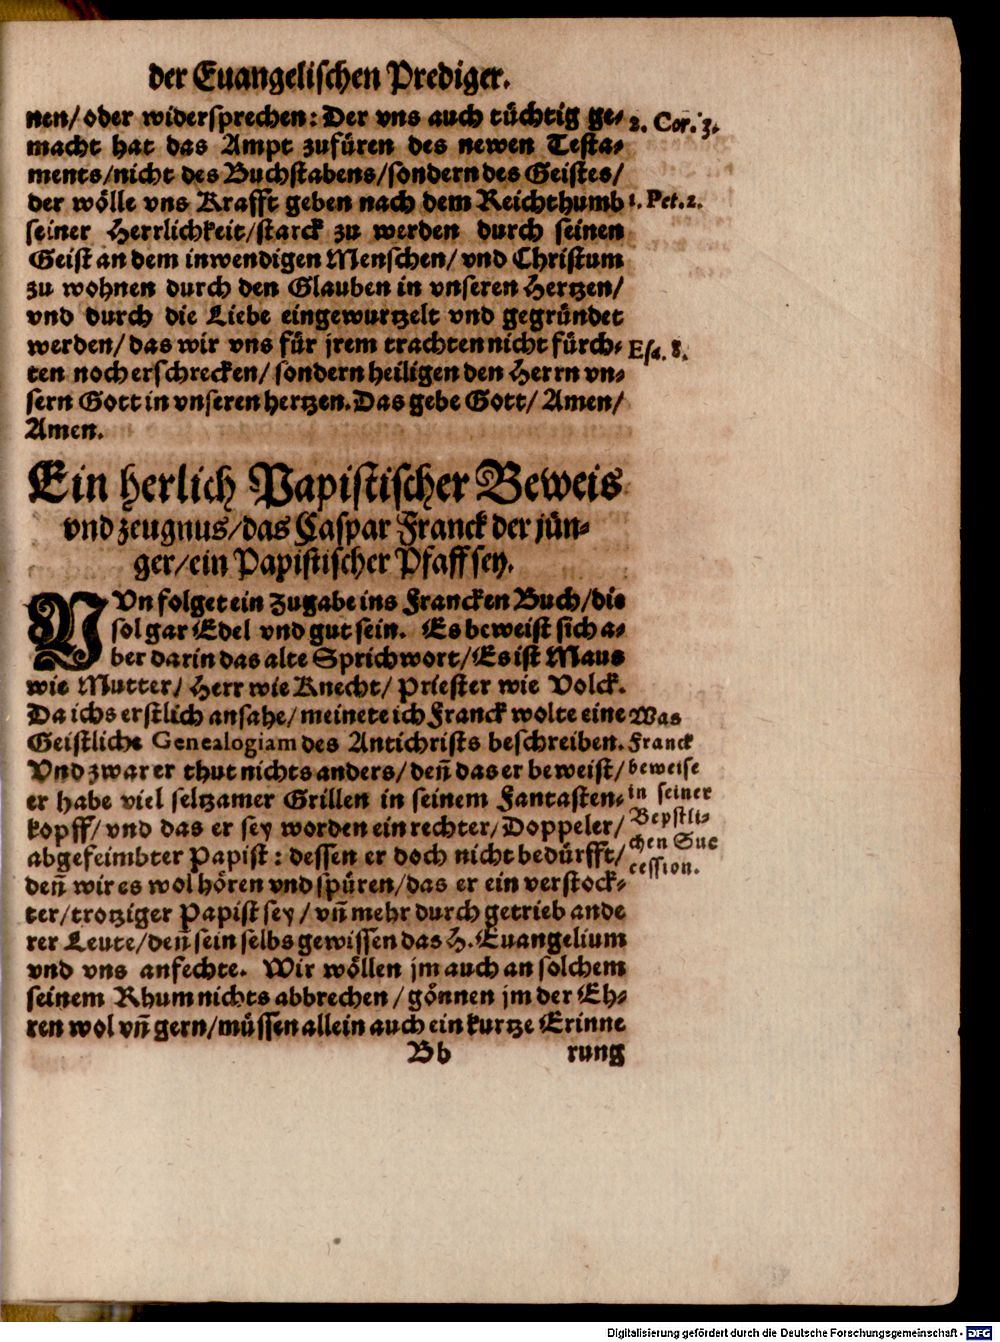 der Euangelischen Prediger.
nen/ oder widersprechen: Der vns auch tüchtig ge-
macht hat das Ampt zufüren des newen Testa-
ments/nicht des Buchstabens/sondern des Geistes/
der wölle vns Krafft geben nach dem Reichthumb
seiner Herrlichkeit/starck zu werden durch seinen
Geist an dem inwendigen Menschen/ vnd Christum
zu wohnen durch den Glauben in vnseren Hertzen/
vnd durch die Liebe eingewurtzelt vnd gegründet
werden/ das wir vns für jrem trachten nicht fürch-
ten noch erschrecken/ sondern heiligen den Herrn vn-
sern Gott in vnseren hertzen. Das gebe Gott/ Amen/
Amen.
2. Cor. 3.
1. Pet. 2.
Esa. 8.
Ein herlich Papistischer Beweis
vnd zeugnus/das Caspar Franck der jün-
ger/ein Papistischer Pfaff sey.
NVn folget ein Zugabe ins Francken Buch/die
sol gar Edel vnd gut sein. Es beweist sich a-
ber darin das alte Sprichwort/Es ist Maus
wie Mutter/ Herr wie Knecht/ Priester wie Volck.
Da ichs erstlich ansahe/ meinete ich Franck wolte eine
Geistliche Genealogiam des Antichrists beschreiben.
Vnd zwar er thut nichts anders/ deñ das er beweist/
er habe viel seltzamer Grillen in seinem Fantasten-
kopff/ vnd das er sey worden ein rechter/ Doppeler/
abgefeimbter Papist: dessen er doch nicht bedürfft/
deñ wir es wol hören vnd spüren/das er ein verstock-
ter/trotziger Papist sey/ vñ mehr durch getrieb ande
rer Leute/deñ sein selbs gewissen das H. Euangelium
vnd vns anfechte. Wir wöllen jm auch an solchem
seinem Rhum nichts abbrechen/ gönnen jm der Eh-
ren wol vñ gern/müssen allein auch ein kurtze Erinne
Was
Franck
beweise
in seiner
Bepstli-
chen Suc
cession.
Bb rung
Digitalisierung gefördert durch die Deutsche Forschungsgemeinschaft - DFG